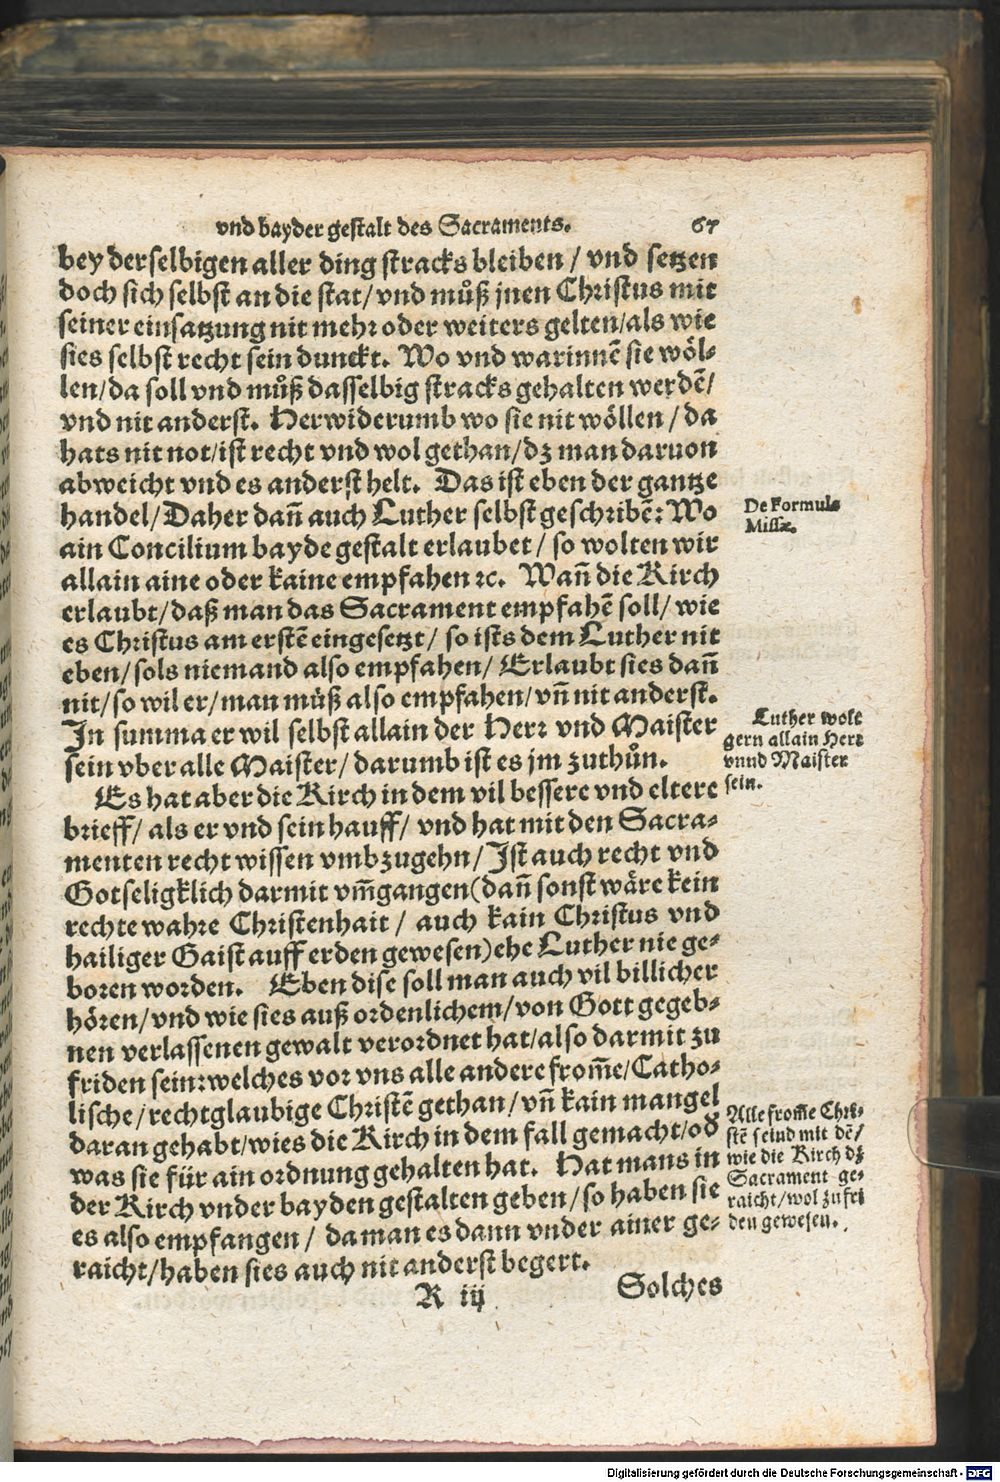 vnd bayder gestalt des Sacraments. 67
bey derselbigen aller ding stracks bleiben / vnd setzen
doch sich selbst an die stat/ vnd můß jnen Christus mit
seiner einsatzung nit mehr oder weiters gelten/als wie
sies selbst recht sein dunckt. Wo vnd warinnē sie wöl⸗
len/da soll vnd můß dasselbig stracks gehalten werdē/
vnd nit anderst. Herwiderumb wo sie nit wöllen / da
hats nit not/ist recht vnd wol gethan/dz man daruon
abweicht vnd es anderst helt. Das ist eben der gantze
handel/Daher dañ auch Luther selbst geschribē: Wo
De Formula
Missæ.
ain Concilium bayde gestalt erlaubet / so wolten wir
allain aine oder kaine empfahen ꝛc. Wañ die Kirch
erlaubt/daß man das Sacrament empfahē soll/ wie
es Christus am erstē eingesetzt/ so ists dem Luther nit
eben/sols niemand also empfahen/ Erlaubt sies dañ
nit/so wil er/man můß also empfahen/vñ nit anderst.
In summa er wil selbst allain der Herr vnd Maister
sein vber alle Maister/ darumb ist es jm zuthůn.
Luther wolt
gern allain Herr
vnnd Maister
sein.
Es hat aber die Kirch in dem vil bessere vnd eltere
brieff/ als er vnd sein hauff/ vnd hat mit den Sacra⸗
menten recht wissen vmbzugehn/Ist auch recht vnd
Gotseligklich darmit vm̃gangen(dañ sonst wäre kein
rechte wahre Christenhait / auch kain Christus vnd
hailiger Gaist auff erden gewesen)ehe Luther nie ge⸗
boren worden. Eben dise soll man auch vil billicher
hören/vnd wie sies auß ordenlichem/von Gott gegeb⸗
nen verlassenen gewalt verordnet hat/also darmit zu
friden sein:welches vor vns alle andere from̃e/Catho⸗
lische/rechtglaubige Christē gethan/vñ kain mangel
daran gehabt/wies die Kirch in dem fall gemacht/oď
was sie für ain ordnung gehalten hat. Hat mans in
der Kirch vnder bayden gestalten geben/so haben sie
es also empfangen / da man es dann vnder ainer ge⸗
raicht/haben sies auch nit anderst begert.
Alle from̃e Chri⸗
stē seind mit dē/
wie die Kirch dz
Sacrament ge⸗
raicht/wol zufri
den gewesen.
R iij Solches
Digitalisierung gefördert durch die Deutsche Forschungsgemeinschaft - DFG